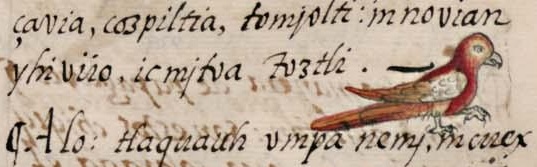 çavia, cozpiltia, tomjolti: in novian
yhiviio, ic mjtva toztli.
¶ Alo: tlaquauh vmpa nemj, in cuex